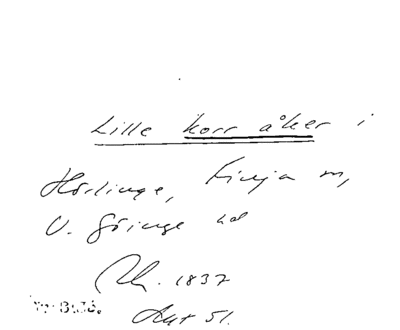 Lille korr åker i
Hörlinge, Finja m,
V. Göinge hd
1837